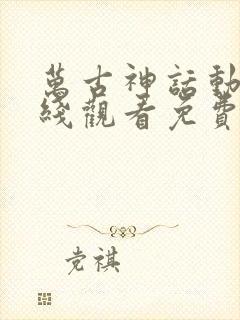 萬古神話動
綫觀看免費
党祺